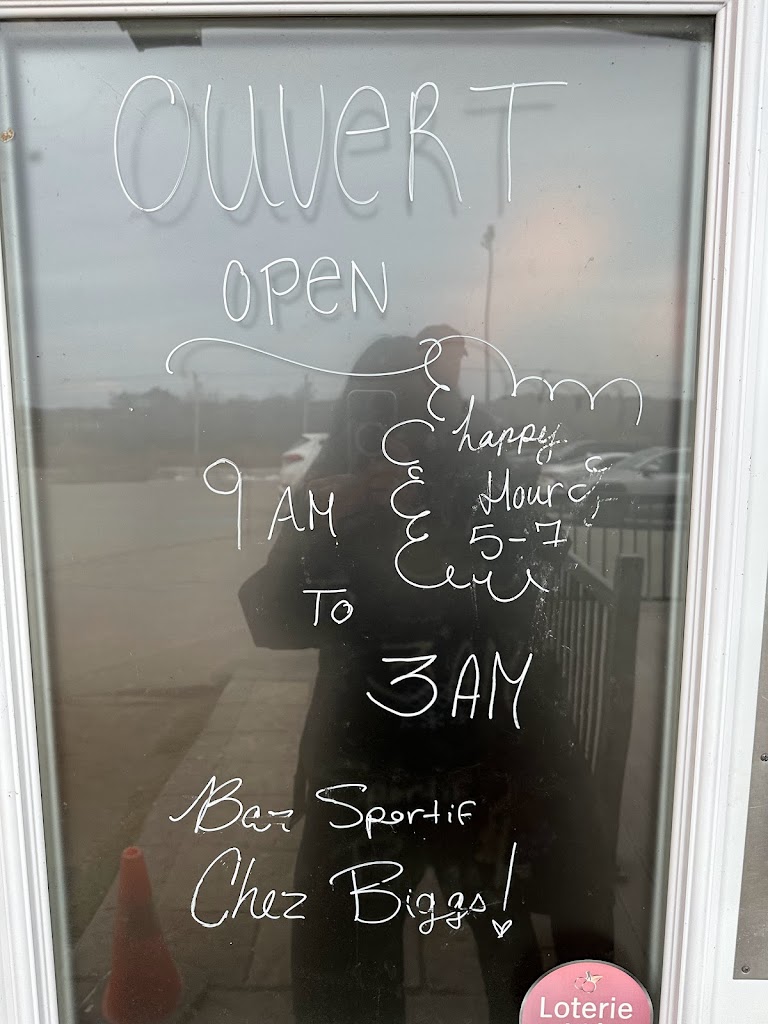 OUVERT
OPEN
happy
Hour
5-7
9 AM
TO
3 AM
Bar Sportif
Chez Biggs!
Loterie